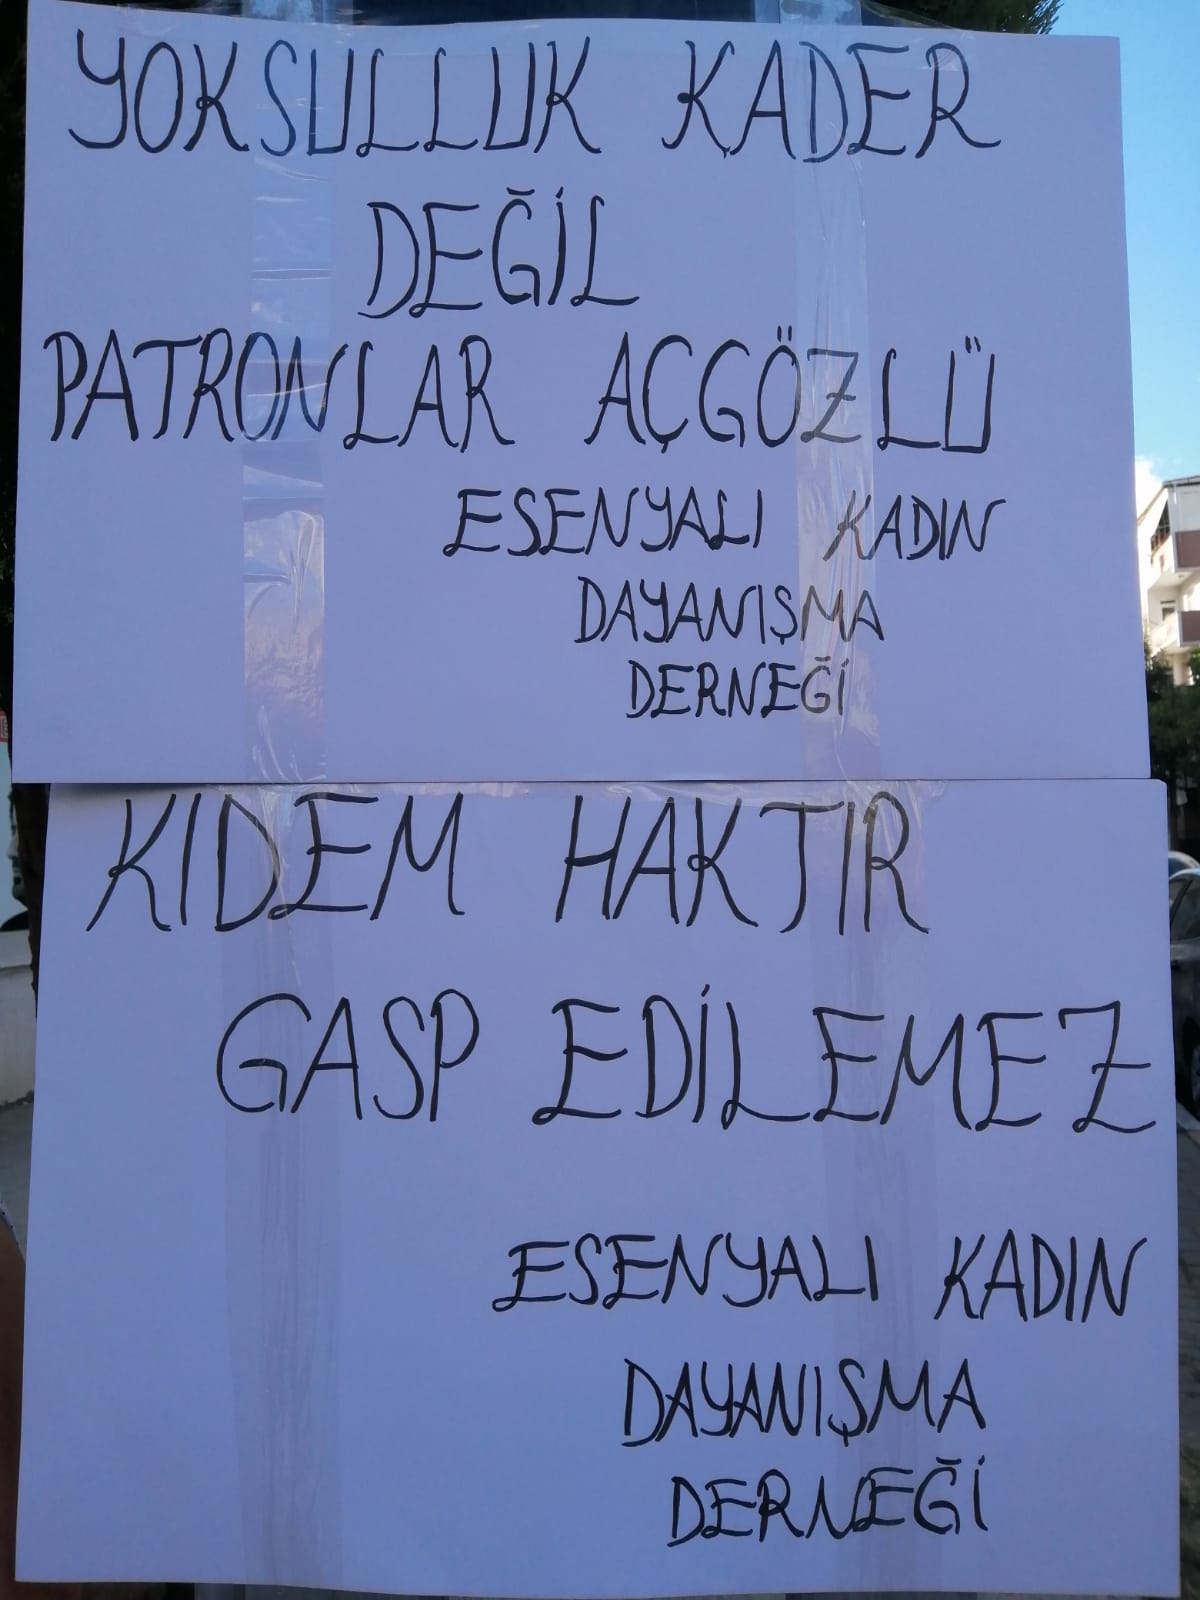 YOKSULLUK KADER
DEĞİL
PATRONLAR AÇGÖZLÜ
ESENYALI KADIN
DAYANIŞMA
DERNEĞİ
KIDEM HAKTIR
GASP EDİLEMEZ
ESENYALI KADIN
DAYANIŞMA
DERNEĞİ